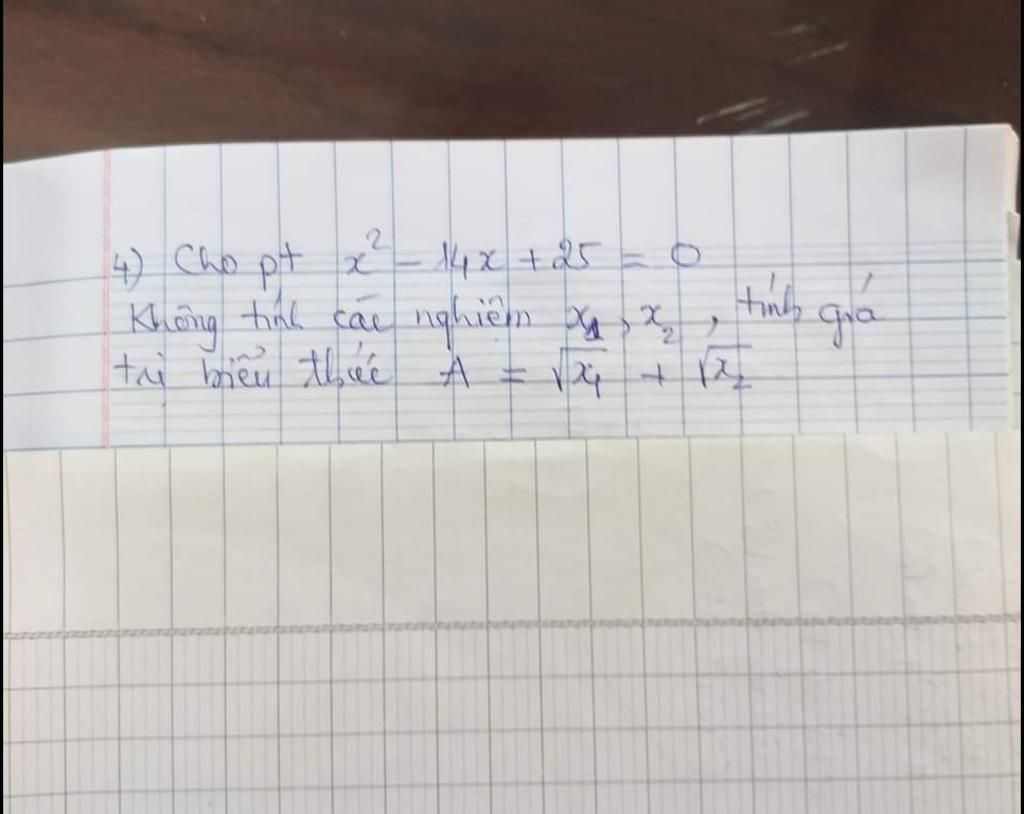 4) Cho pt x² - 14x + 25 = 0
Không tính các nghiệm x₁, x₂, tính giá
trị biểu thức A = √x₁ + √x₂